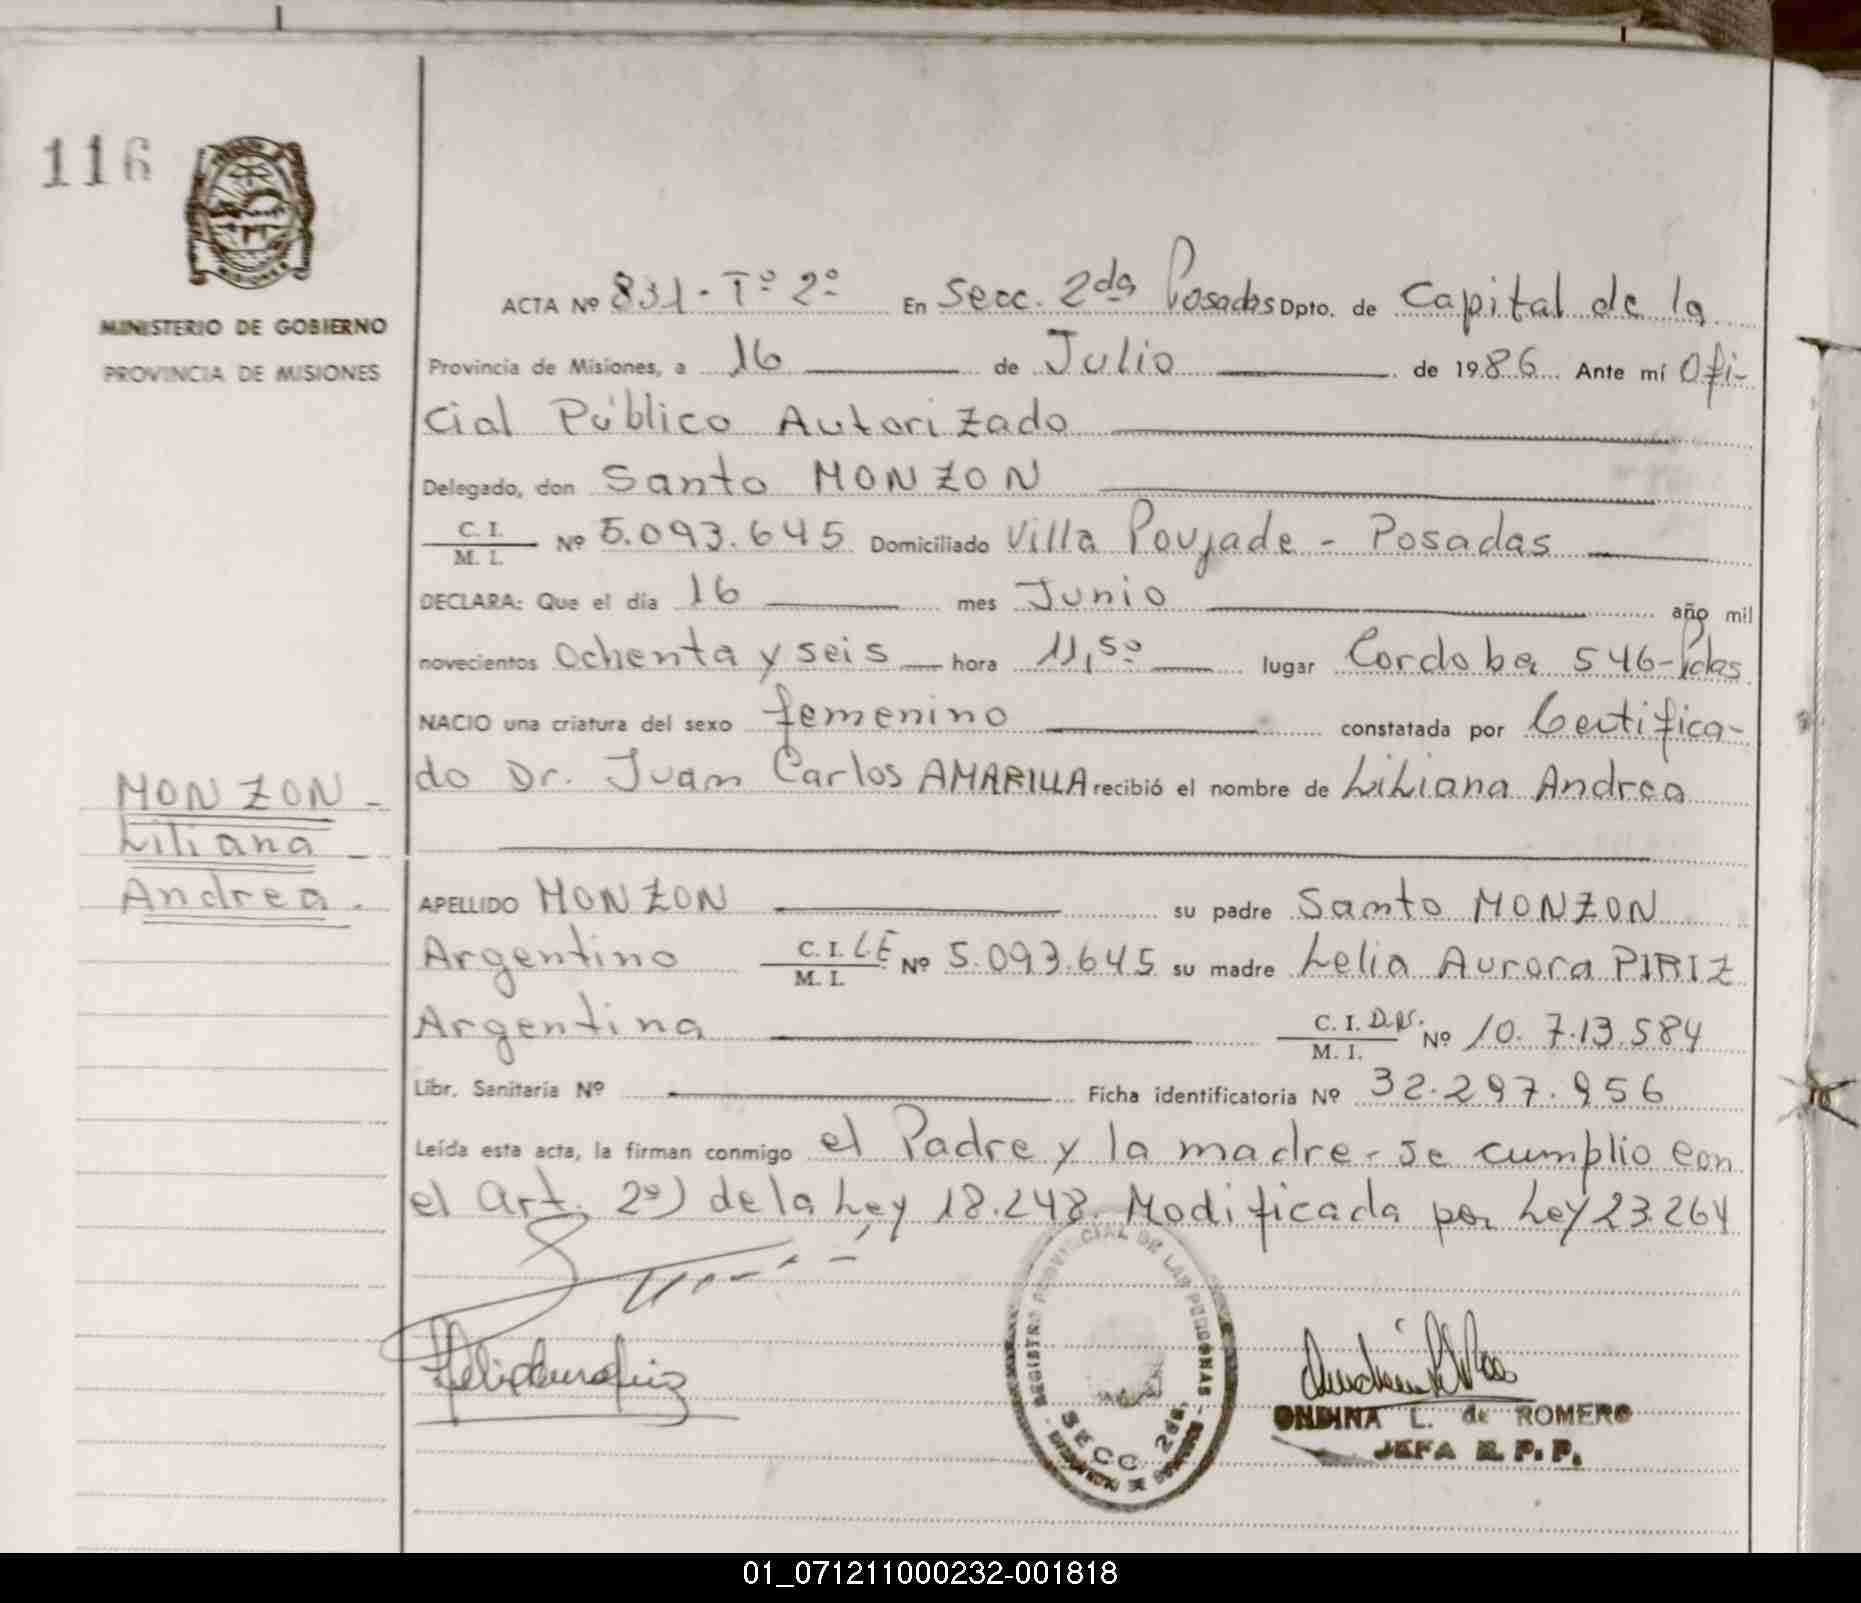 116
MISIONES
MINISTERIO DE GOBIERNO
PROVINCIA DE MISIONES
ACTA Nº 831 - Tº 2º En Secc. 2da Posadas Dpto. de Capital de la
Provincia de Misiones, a 16 de Julio de 1986 Ante mí Ofi-
cial Público Autorizado
Delegado, don Santo MONZON
C. I. M. I. Nº 5.093.645 Domiciliado Villa Poujade - Posadas
DECLARA: Que el día 16 mes Junio año mil
novecientos Ochenta y seis hora 11,50 lugar Cordoba 546-Pdas
NACIO una criatura del sexo femenino constatada por Certifica-
do Dr. Juan Carlos AMARILLA recibió el nombre de Liliana Andrea
MONZON -
Liliana -
Andrea.
APELLIDO MONZON su padre Santo MONZON
Argentino C. I. LE M. I. Nº 5.093.645 su madre Lelia Aurora PIRIZ
Argentina C. I. D.N. M. I. Nº 10.713.584
Libr. Sanitaria Nº Ficha identificatoria Nº 32.297.956
Leída esta acta, la firman conmigo el Padre y la madre - se cumplio con
el Art. 2º) de la Ley 18.248. Modificada por Ley 23.264
REGISTRO PROVINCIAL DE LAS PERSONAS
SECC 2da.
ONDINA L. de ROMERO
JEFA R. P. P.
01_071211000232-001818